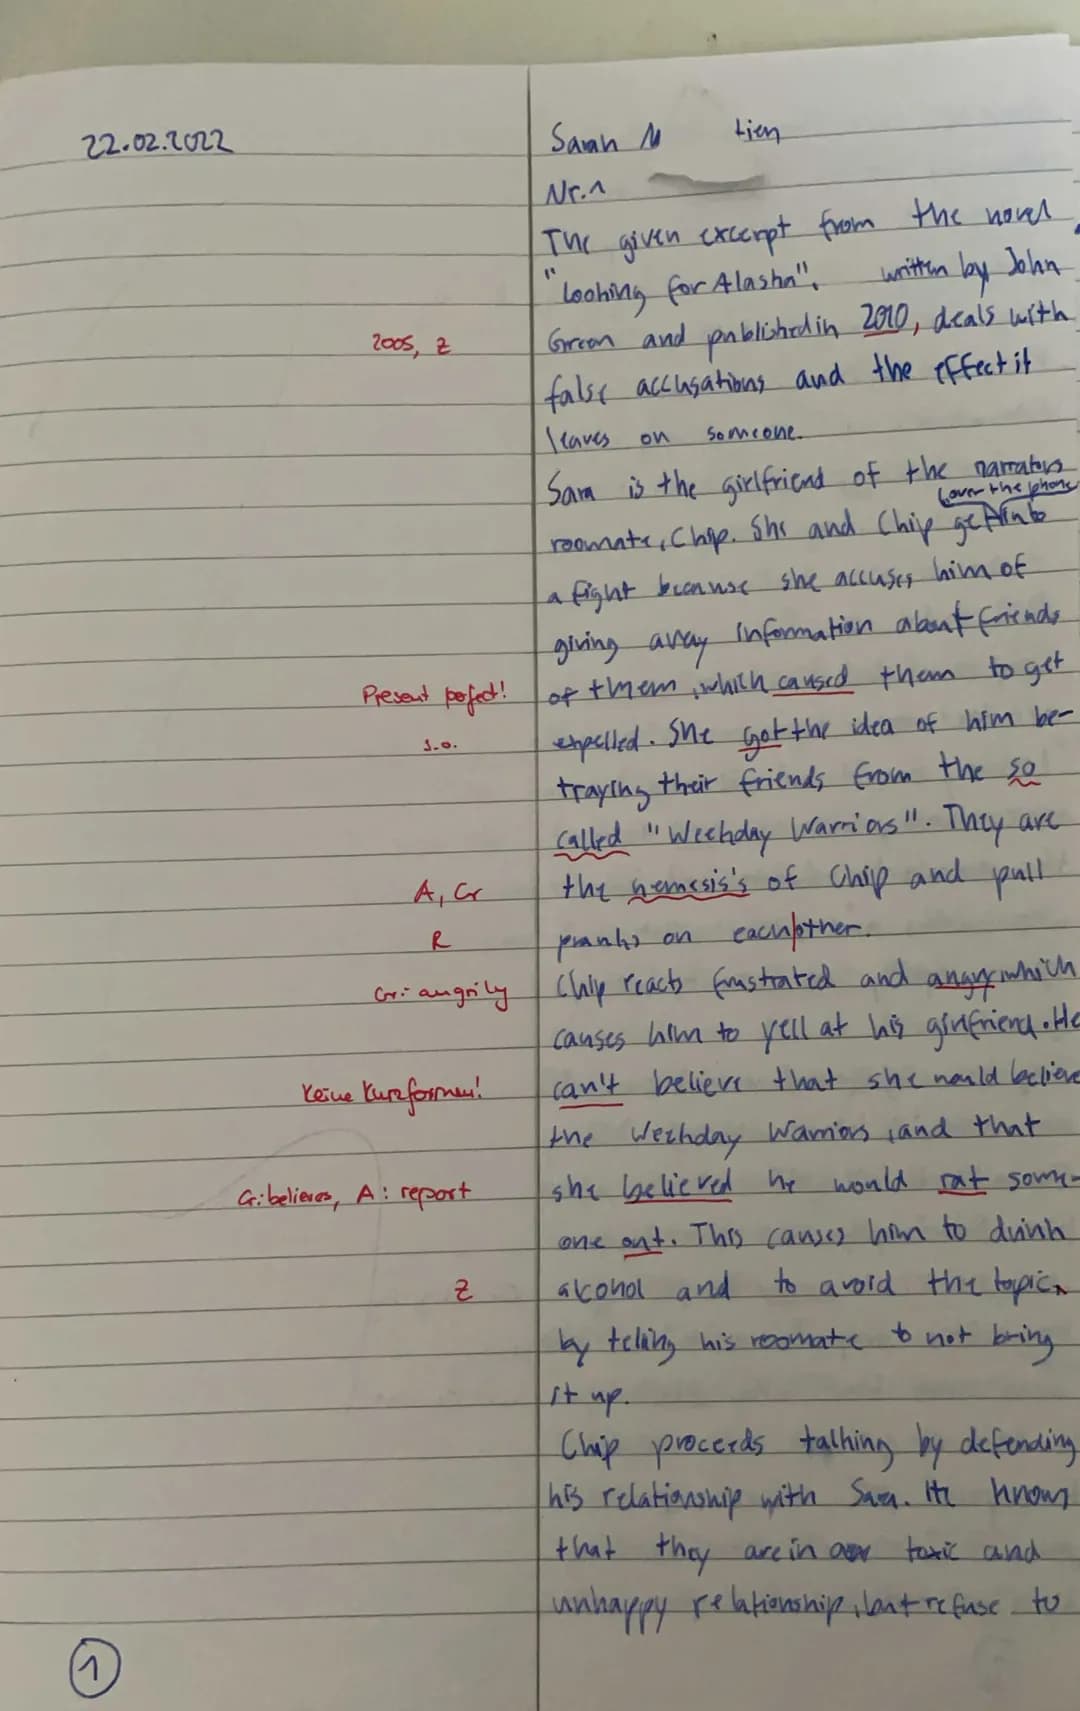 22.02.2022
Sarah M tien
Nr.1
The given excerpt from the novel
"Looking for Alaska", written by John
2005, Z
Green and published in 2010, deals with
false accusations and the effect it
leaves on someone.
Sara is the girlfriend of the narrators
over the phone
roomate, Chip. She and Chip get into
a fight because she accuses him of
giving away information about friends
Present perfect!
of them, which caused them to get
s.o.
expelled. She got the idea of him be-
traying their friends from the so
called "Weekday Warriors". They are
A, Gr
the nemesis's of Chip and pull
R
pranks on each|other.
Gr: angrily
Chip reacts frustrated and angry, which
causes him to yell at his girlfriend. He
Keine Kurzformen!
can't believe that she would believe
the Weekday Warriors, and that
G: believes, A: report
she believed he would rat some-
one out. This causes him to drink
Z
alcohol and to avoid the topic,
by telling his roomate to not bring
it up.
Chip proceeds talking by defending
his relationship with Sara. He knows
that they are in a toxic and
unhappy relationship, but refuse to
1